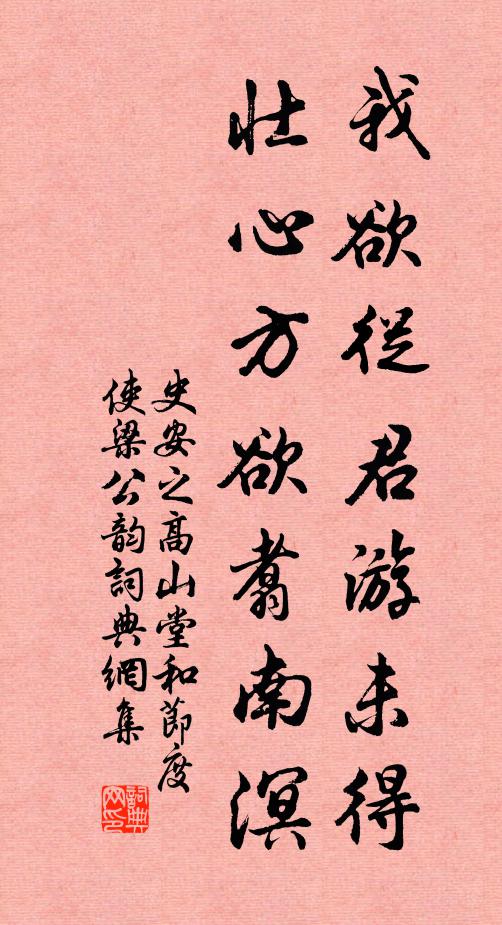 我欲從君游未得
壯心方欲翥南溟
史安之高山堂和節度
使梁公韵詞典網集
詞典网印